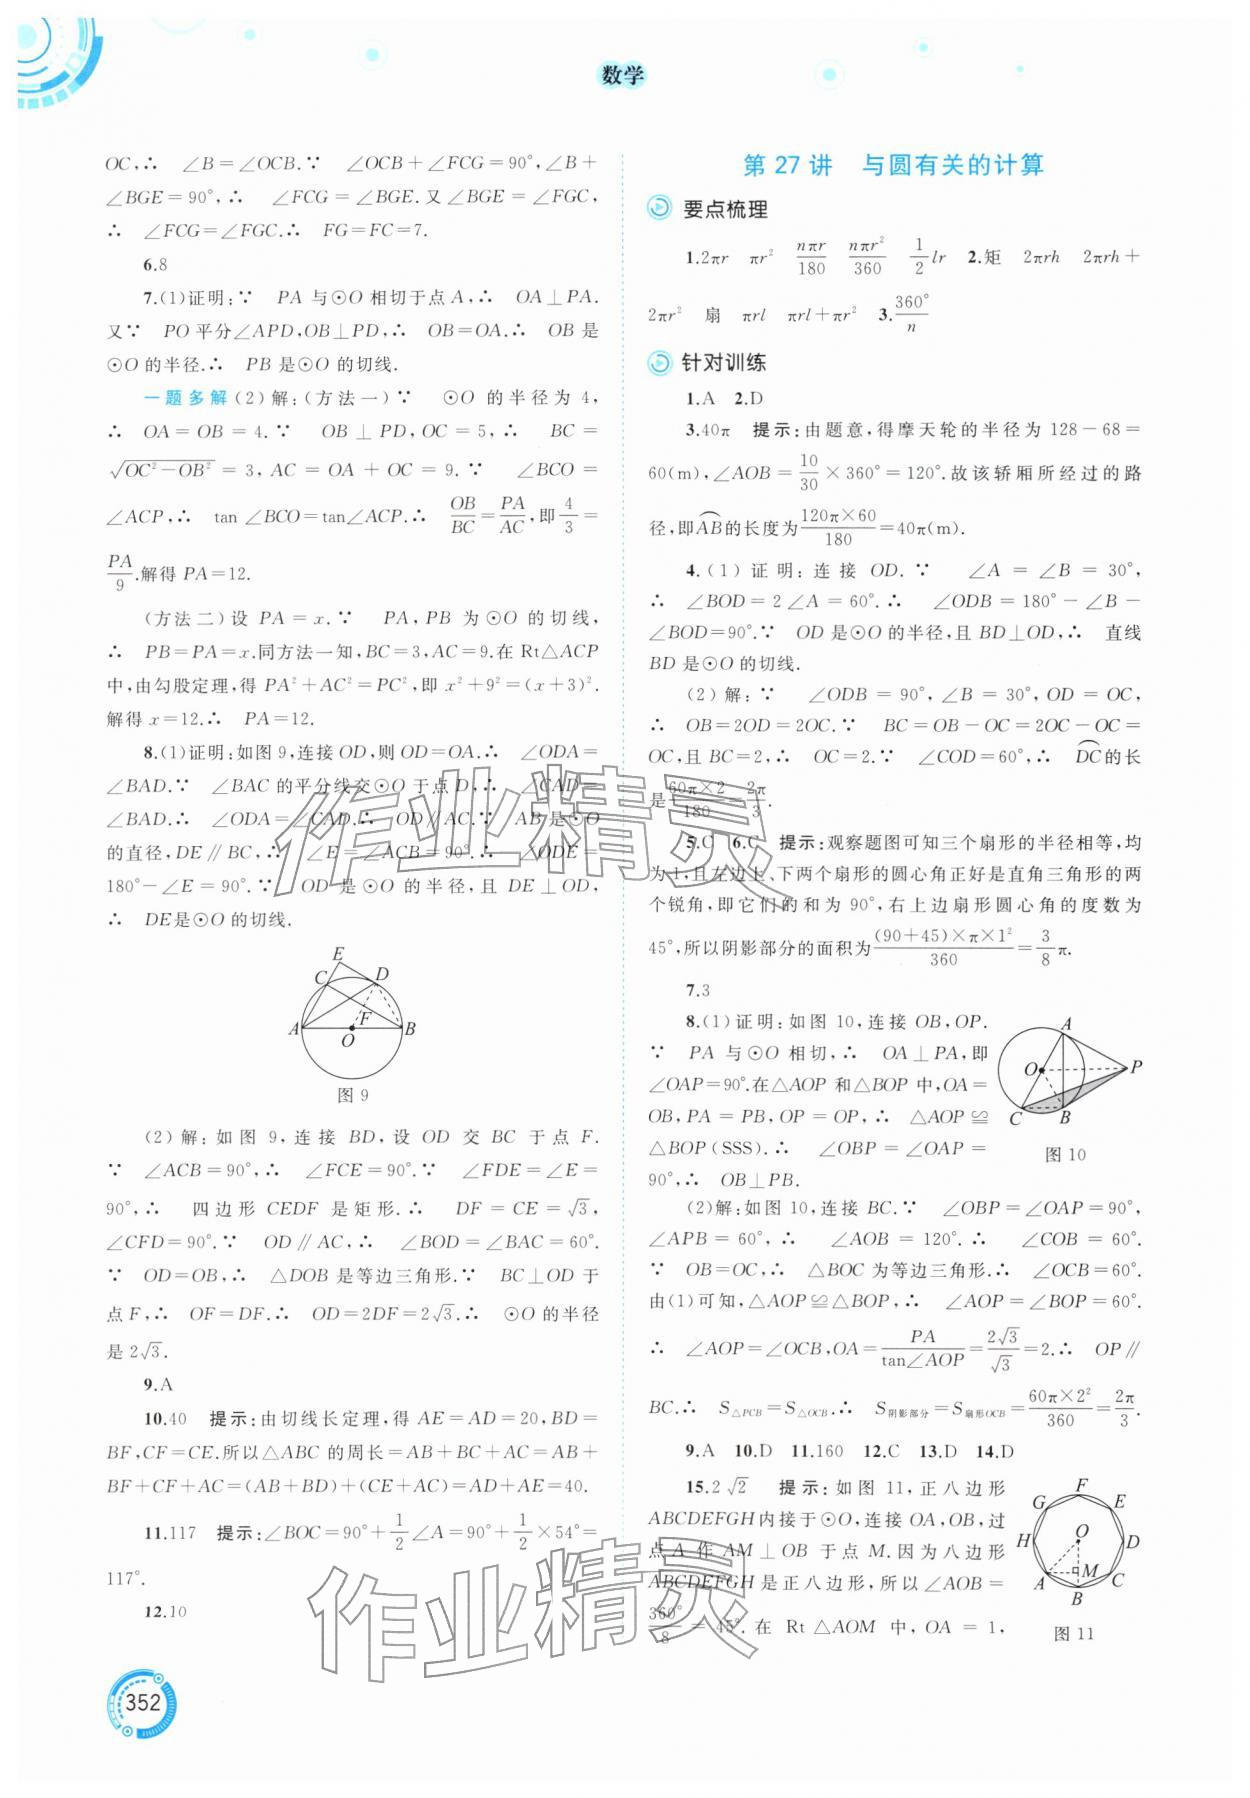 数学
OC,∴ ∠B=∠OCB.∵ ∠OCB+∠FCG=90°,∠B+
∠BGE=90°,∴ ∠FCG=∠BGE.又∠BGE=∠FGC,
∴ ∠FCG=∠FGC.∴ FG=FC=7.
6.8
7.(1)证明:∵ PA与⊙O相切于点A,∴ OA⊥PA.
又∵ PO平分∠APD,OB⊥PD,∴ OB=OA.∴ OB是
⊙O的半径.∴ PB是⊙O的切线.
一题多解(2)解:(方法一)∵ ⊙O的半径为4,
∴ OA=OB=4.∵ OB⊥PD,OC=5,∴ BC=
√(OC²-OB²)=3,AC=OA+OC=9.∵ ∠BCO=
∠ACP,∴ tan∠BCO=tan∠ACP.∴ OB/BC=PA/AC,即4/3=
PA/9.解得PA=12.
(方法二)设PA=x.∵ PA,PB为⊙O的切线,
∴ PB=PA=x.同方法一知,BC=3,AC=9.在Rt△ACP
中,由勾股定理,得PA²+AC²=PC²,即x²+9²=(x+3)².
解得x=12.∴ PA=12.
8.(1)证明:如图9,连接OD,则OD=OA.∴ ∠ODA=
∠BAD.∵ ∠BAC的平分线交⊙O于点D,∴ ∠CAD=
∠BAD.∴ ∠ODA=∠CAD.∴ OD∥AC.∵ AB是⊙O
的直径,DE∥BC,∴ ∠E=∠ACB=90°.∴ ∠ODE=
180°-∠E=90°.∵ OD是⊙O的半径,且DE⊥OD,
∴ DE是⊙O的切线.
E
C D
F
A O B
图9
(2)解:如图9,连接BD,设OD交BC于点F.
∵ ∠ACB=90°,∴ ∠FCE=90°.∵ ∠FDE=∠E=
90°,∴ 四边形CEDF是矩形.∴ DF=CE=√3,
∠CFD=90°.∵ OD∥AC,∴ ∠BOD=∠BAC=60°.
∵ OD=OB,∴ △DOB是等边三角形.∵ BC⊥OD于
点F,∴ OF=DF.∴ OD=2DF=2√3.∴ ⊙O的半径
是2√3.
9.A
10.40 提示:由切线长定理,得AE=AD=20,BD=
BF,CF=CE.所以△ABC的周长=AB+BC+AC=AB+
BF+CF+AC=(AB+BD)+(CE+AC)=AD+AE=40.
11.117 提示:∠BOC=90°+1/2∠A=90°+1/2×54°=
117°.
12.10
352
第27讲 与圆有关的计算
要点梳理
1.2πr πr² nπr/180 nπr²/360 1/2lr 2.矩 2πrh 2πrh+
2πr² 扇 πrl πrl+πr² 3.360°/n
针对训练
1.A 2.D
3.40π 提示:由题意,得摩天轮的半径为128-68=
60(m),∠AOB=10/30×360°=120°.故该轿厢所经过的路
径,即AB⌒的长度为120π×60/180=40π(m).
4.(1)证明:连接OD.∵ ∠A=∠B=30°,
∴ ∠BOD=2∠A=60°.∴ ∠ODB=180°-∠B-
∠BOD=90°.∵ OD是⊙O的半径,且BD⊥OD,∴ 直线
BD是⊙O的切线.
(2)解:∵ ∠ODB=90°,∠B=30°,OD=OC,
∴ OB=2OD=2OC.∵ BC=OB-OC=2OC-OC=
OC,且BC=2,∴ OC=2.∵ ∠COD=60°,∴ DC⌒的长
是60π×2/180=2π/3.
5.C 6.C 提示:观察题图可知三个扇形的半径相等,均
为1,且左边上、下两个扇形的圆心角正好是直角三角形的两
个锐角,即它们的和为90°,右上边扇形圆心角的度数为
45°,所以阴影部分的面积为(90+45)×π×1²/360=3/8π.
7.3
8.(1)证明:如图10,连接OB,OP.
∵ PA与⊙O相切,∴ OA⊥PA,即
∠OAP=90°.在△AOP和△BOP中,OA=
OB,PA=PB,OP=OP,∴ △AOP≌
△BOP(SSS).∴ ∠OBP=∠OAP=
90°,∴ OB⊥PB.
A
O P
C B
图10
(2)解:如图10,连接BC.∵ ∠OBP=∠OAP=90°,
∠APB=60°,∴ ∠AOB=120°.∴ ∠COB=60°.
∵ OB=OC,∴ △BOC为等边三角形.∴ ∠OCB=60°.
由(1)可知,△AOP≌△BOP,∴ ∠AOP=∠BOP=60°.
∴ ∠AOP=∠OCB,OA=PA/tan∠AOP=2√3/√3=2.∴ OP∥
BC.∴ S△PCB=S△OCB.∴ S阴影部分=S扇形OCB=60π×2²/360=2π/3.
9.A 10.D 11.160 12.C 13.D 14.D
15.2√2 提示:如图11,正八边形
ABCDEFGH内接于⊙O,连接OA,OB,过
点A作AM⊥OB于点M.因为八边形
ABCDEFGH是正八边形,所以∠AOB=
360°/8=45°.在Rt△AOM中,OA=1,
F
G E
H O D
A M C
B
图11
作业精灵
作业精灵